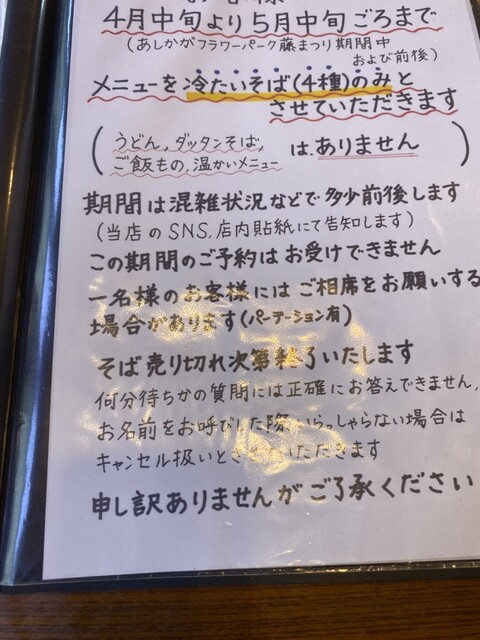 4月中旬より5月中旬ごろまで
(あしかがフラワーパーク藤まつり期間中
および前後)
メニューを冷たいそば(4種)のみと
させていただきます
(うどん,ダッタンそば,
ご飯もの,温かいメニュー はありません)
期間は混雑状況などで多少前後します
(当店のSNS,店内貼紙にて告知します)
この期間のご予約はお受けできません
一名様のお客様にはご相席をお願いする
場合があります(パーテーション有)
そば売り切れ次第終了いたします
何分待ちかの質問には正確にお答えできません,
お名前をお呼びした際,いらっしゃらない場合は
キャンセル扱いとさせていただきます
申し訳ありませんがご了承ください